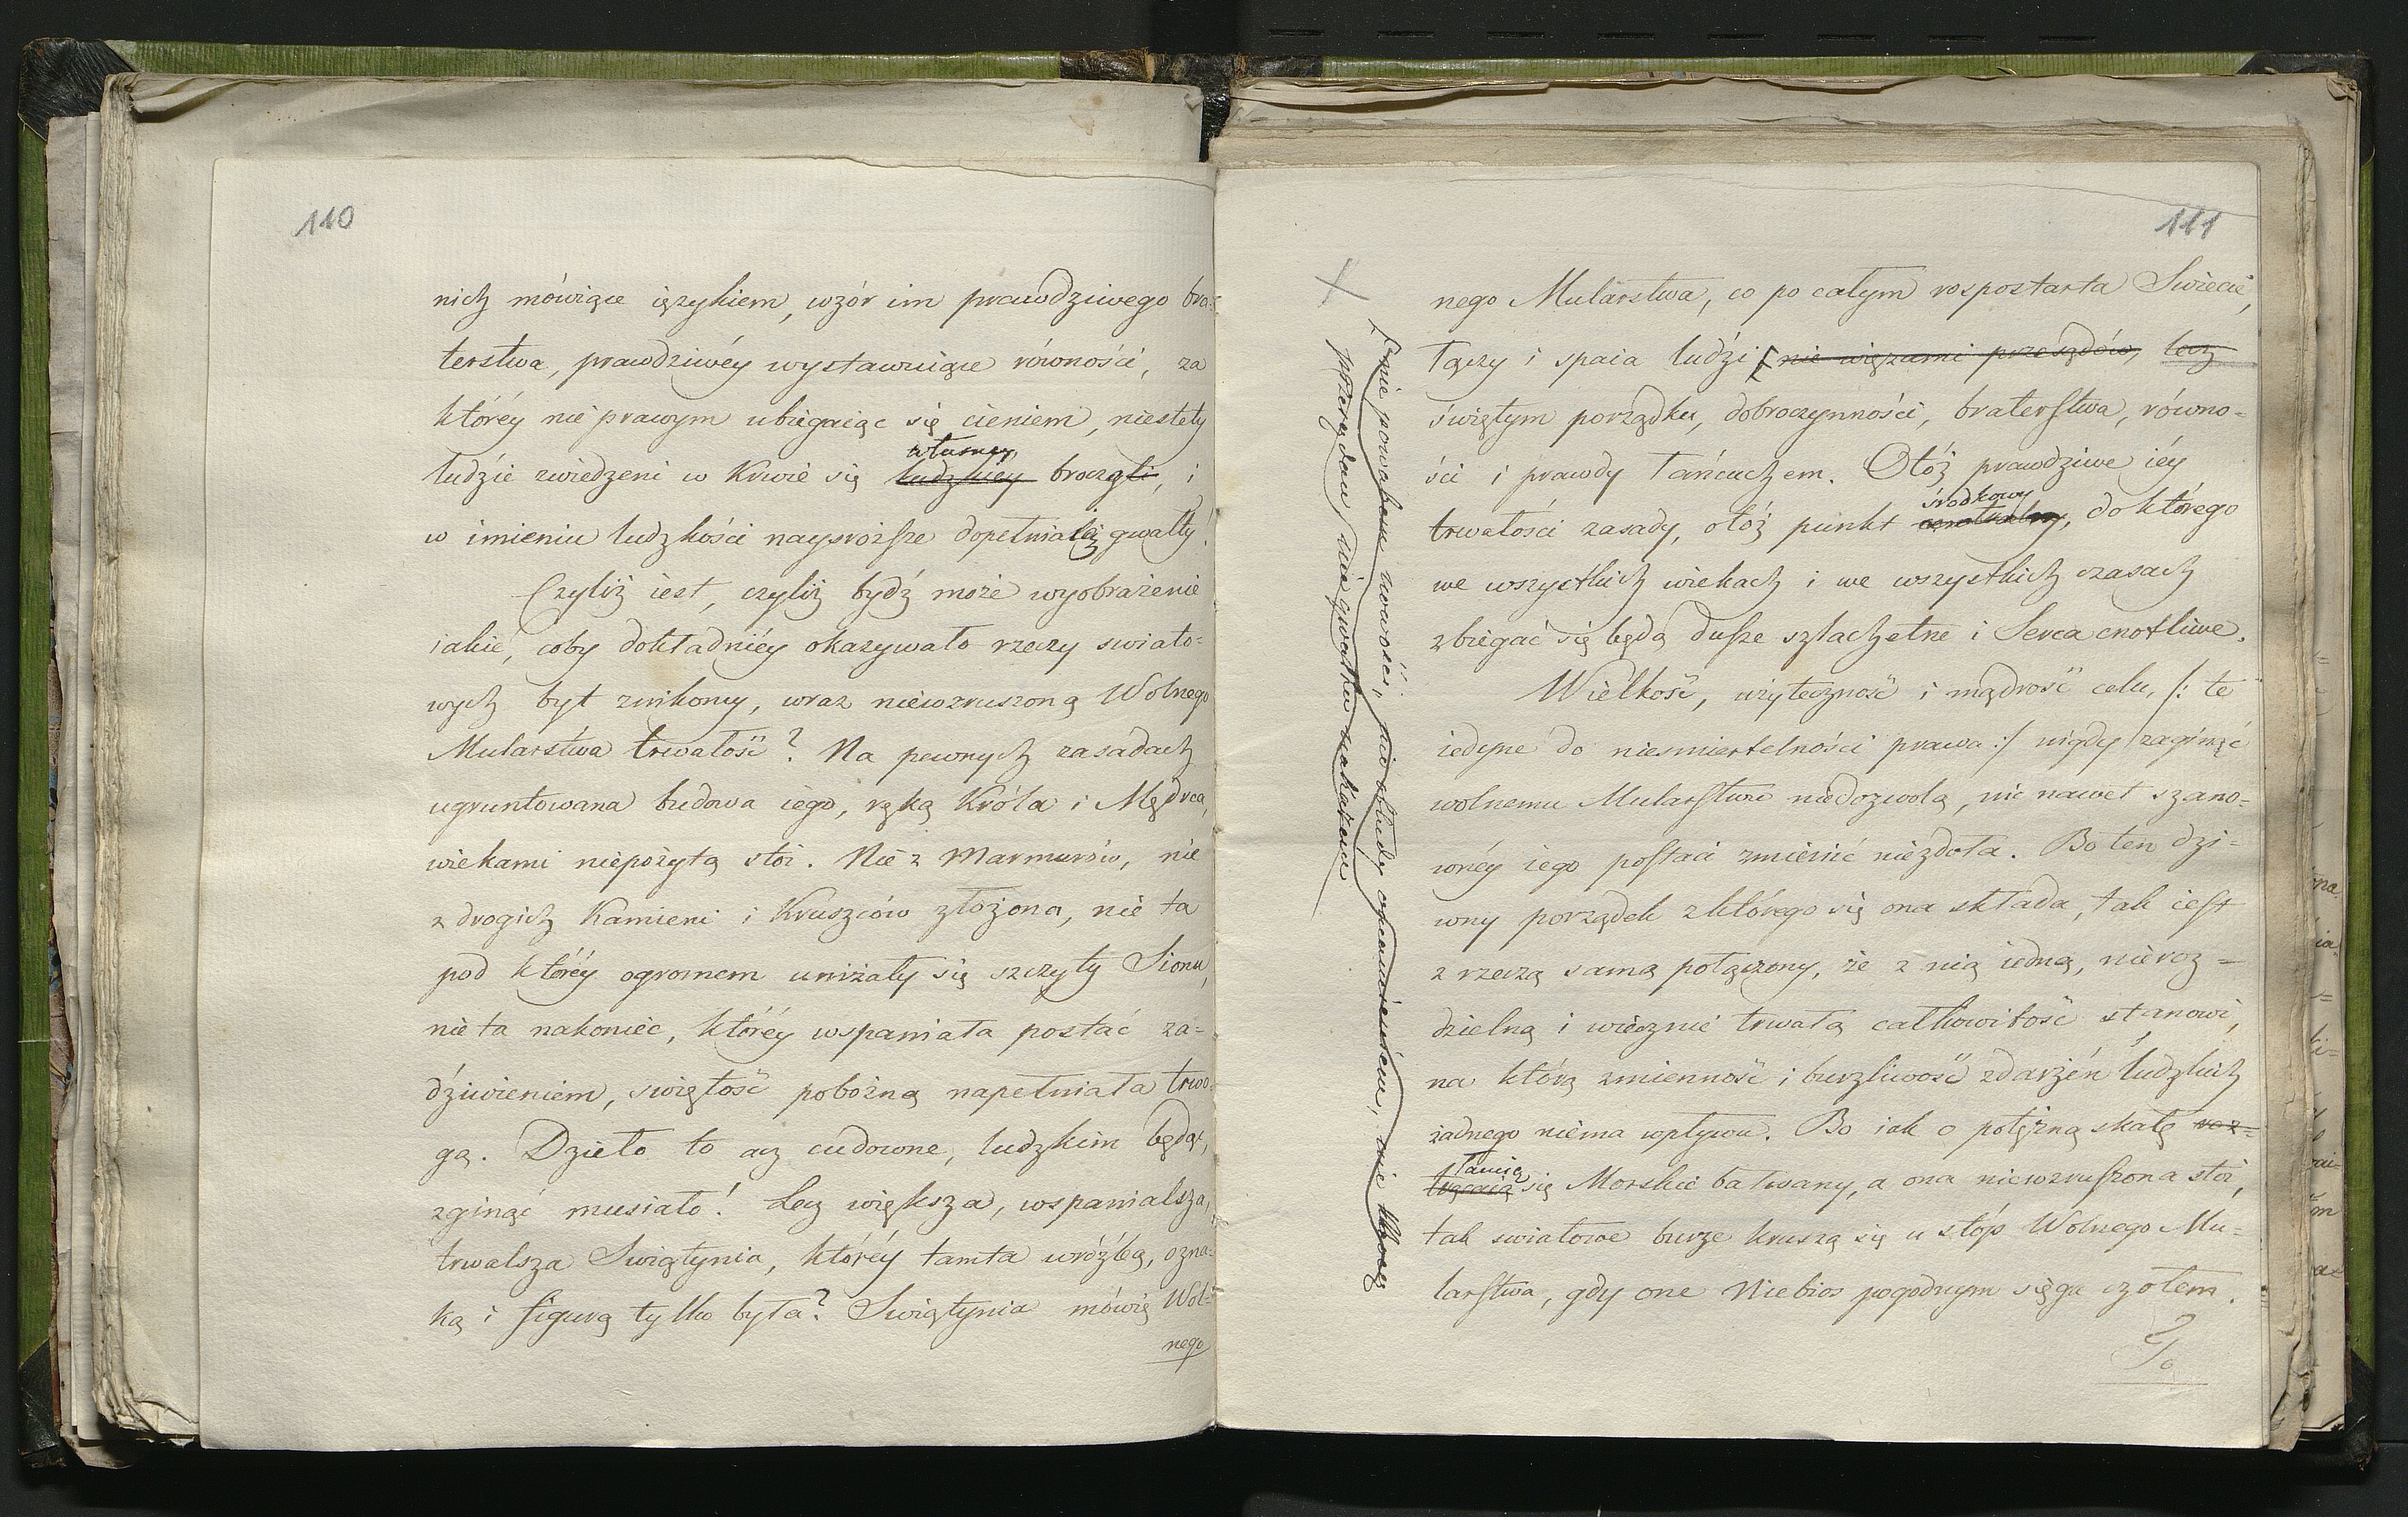 110
nich mówiące ięzykiem, wzór im prawdziwego bra=
terstwa, prawdziwéy wystawuiące równości, za
któréy nieprawym ubiegaiąc się cieniem, niestety
ludzie zwiedzeni w Krwie się ludzkiey broczyli, i
własney
w imieniu ludzkości naysroższe dopełniali gwałty!
Czyliż iest, czyliż bydź może wyobrażenie
iakie, coby dokładniéy okazywało rzeczy swiato=
wych byt znikomy, wraz niewzruszoną Wolnego
Mularstwa trwałość? Na pewnych zasadach
ugruntowana budowa iego, ręką Króla i Mędrca,
wiekami niepożytą stoi. Nie z Marmurów, nie
z drogich Kamieni i Kruszców złożona, nie ta
pod któréy ogromem uniżały się szczyty Sionu,
nie ta nakoniec, któréy wspaniała postać za=
dziwieniem, swiętość pobożną napełniała trwo=
gą. Dzieło to acz cudowne, ludzkim będąc,
zginąć musiało! Lecz większa, wspanialsza,
trwalsza Swiątynia, któréy tamta wróżbą, ozna=
ką i figurą tylko była? Swiątynia mówię Wol=
nego
111
nego Mularstwa, co po całym rospostarta Swiecie,
Łączy i spaia ludzi nie więzami przesądów, lecz
świętym porządku, dobroczynności, braterstwa, równo=
ści i prawdy Łańcuchem. Otóż prawdziwe iéy
trwałości zasady, otóż punkt centralny, do którego
środkowy
we wszystkich wiekach i we wszystkich czasach
zbiegać się będą dusze szlachetne i Serca cnotliwe.
Wielkość, użyteczność i mądrość celu, /: te
iedyne do niesmiertelności prawa :/ nigdy zaginąć
wolnemu Mularstwu niedozwolą, nic nawet szano=
wnéy iego postaci zmienić niezdoła. Bo ten dzi=
wny porządek z którego się ona składa, tak iest
z rzeczą samą połączony, że z nią iedną, nieroz=
dzielną i wiecznie trwałą całkowitość stanowi,
na którą zmienność i burzliwość zdarzeń ludzkich
żadnego niema wpływu. Bo iak o potężną skałę roz=
trącaią się Morskie bałwany, a ona niewzruszona stoi,
łamią
tak swiatowe burze kruszą się u stóp Wolnego Mu=
larstwa, gdy one Niebios pogodnym sięga czołem.
To
nie powabem nowości, nie obłudy omamieniem, nie
przesądów, nie gwałtu nakazem